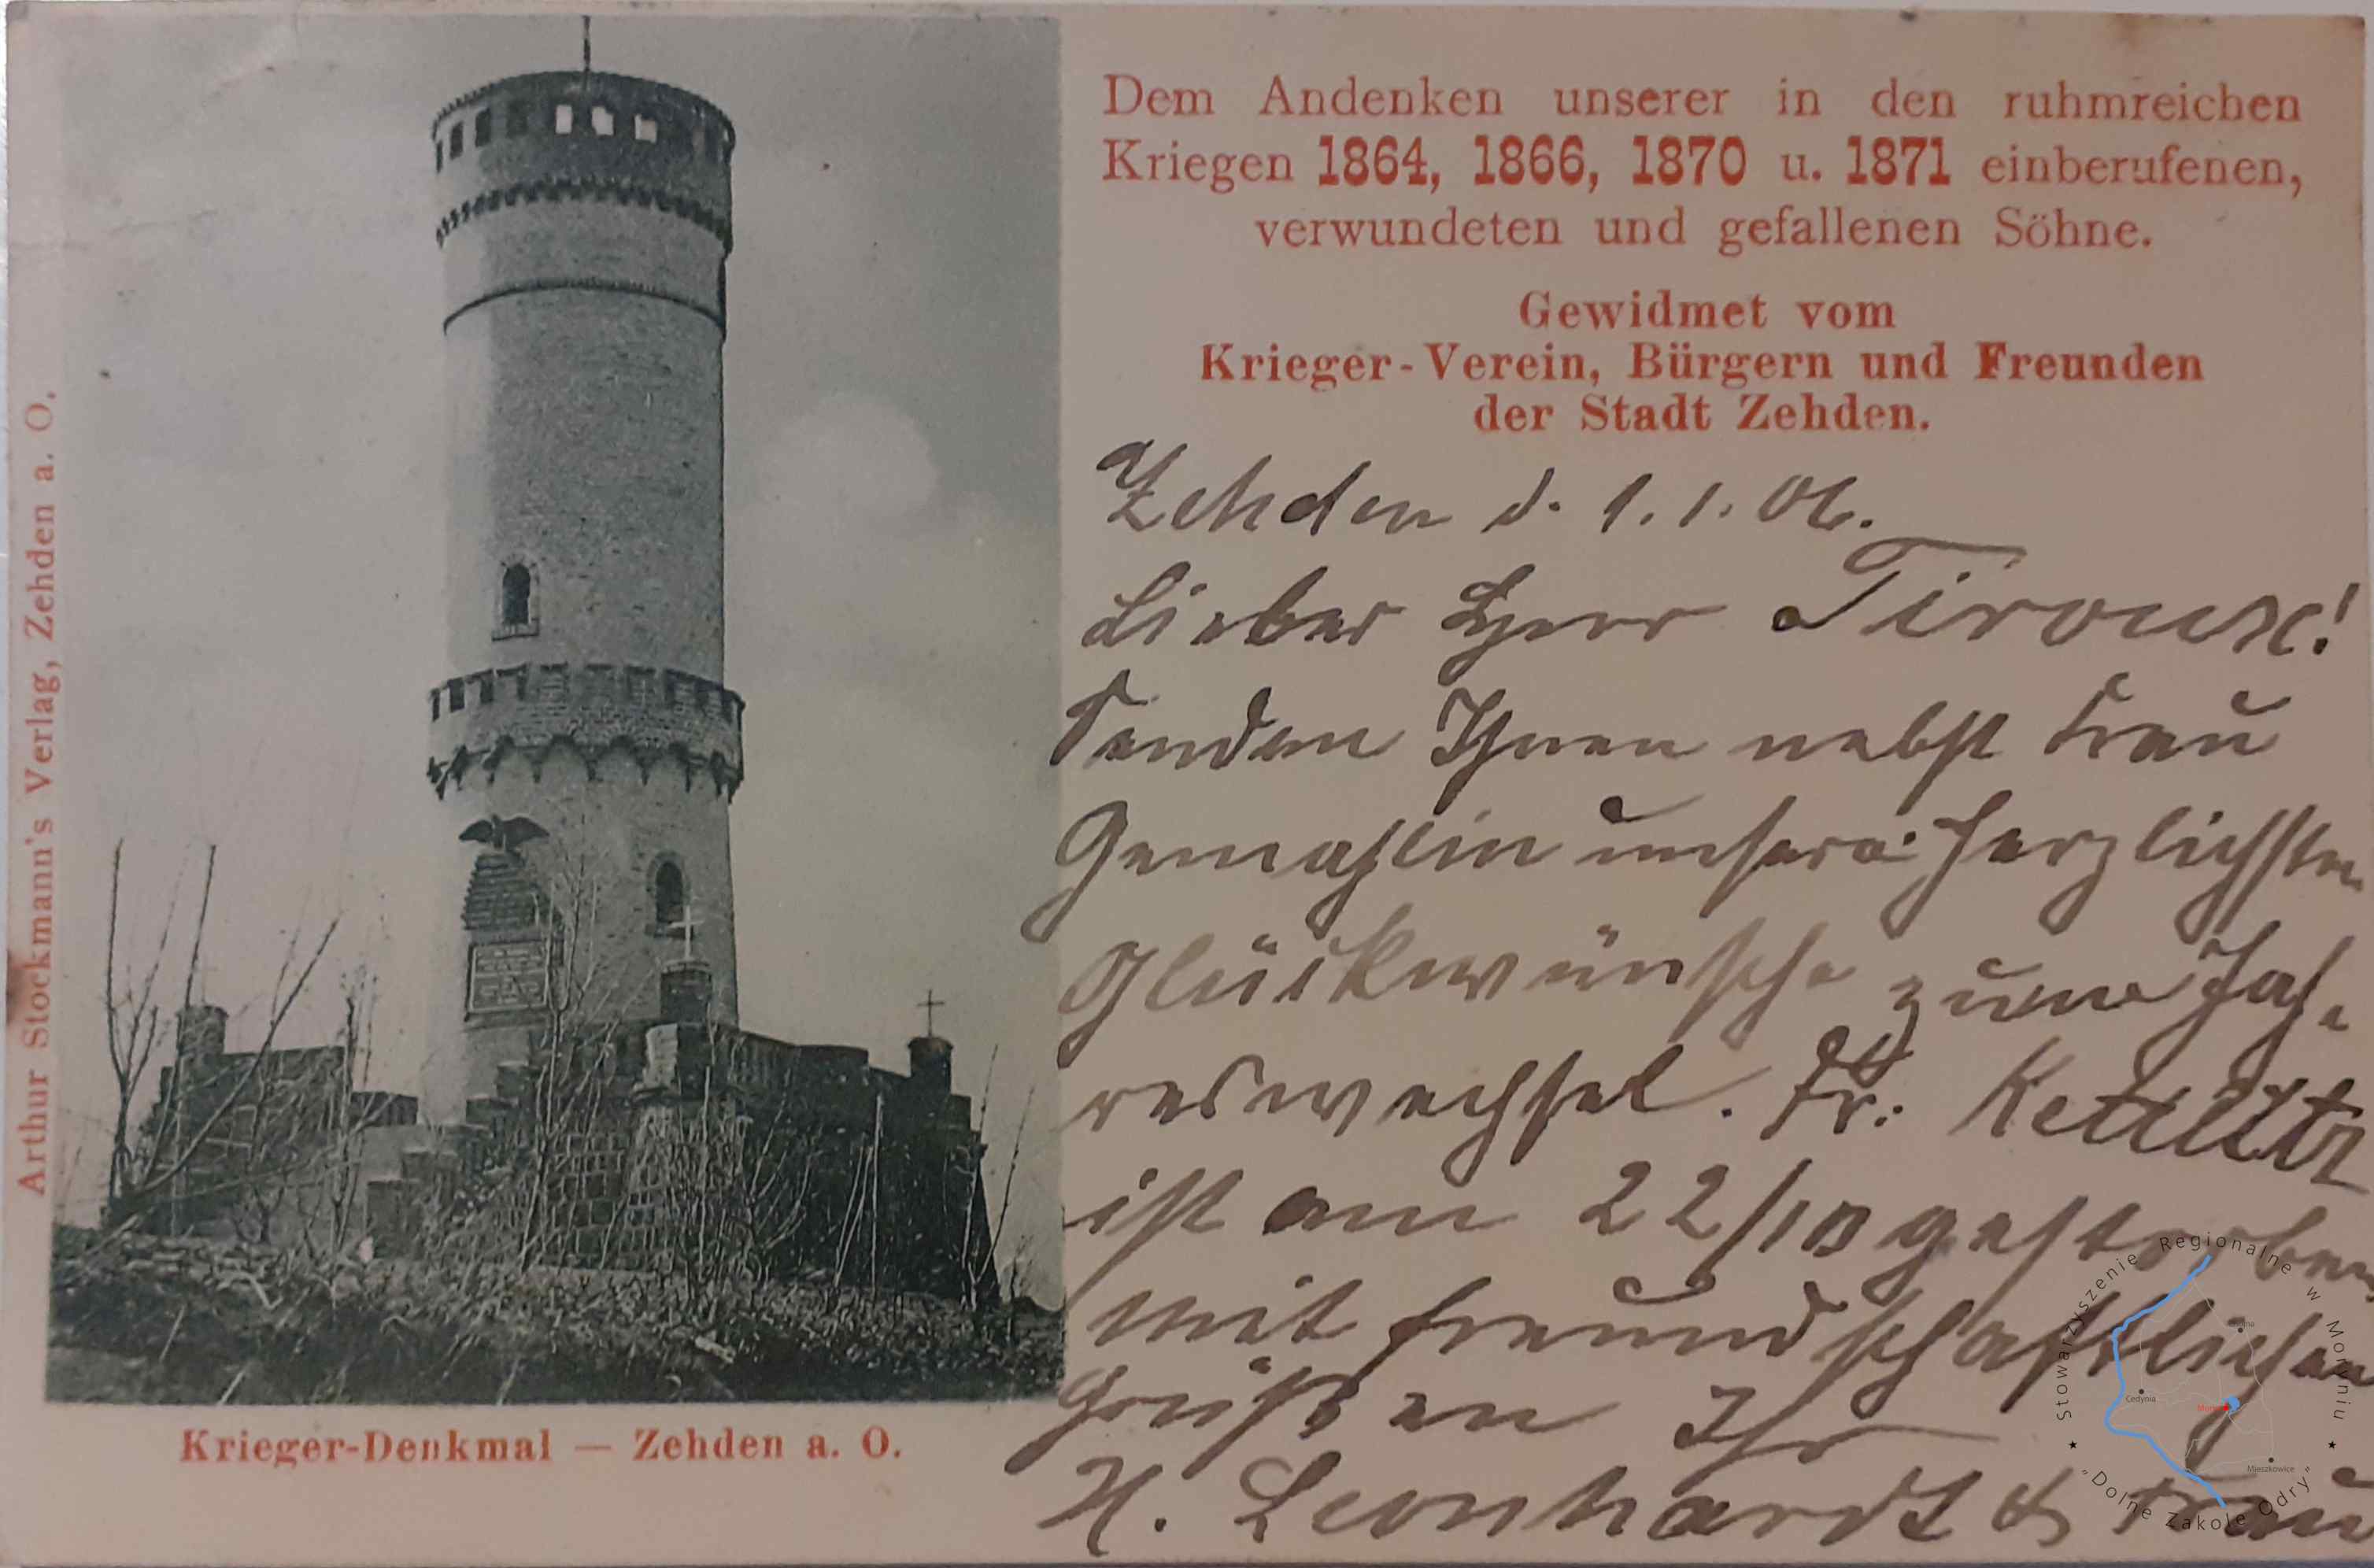 Dem Andenken unserer in den ruhmreichen
Kriegen 1864, 1866, 1870 u. 1871 einberufenen,
verwundeten und gefallenen Söhne.
Gewidmet vom
Krieger-Verein, Bürgern und Freunden
der Stadt Zehden.
Zehden d. 1.1.06.
Lieber Herr Tiroux!
Senden Ihnen nebst Frau
Gemahlin unsere herzlichsten
Glückwünsche zum Jah-
reswechsel. Fr.
ist am 22/10 gestorben
mit freundschaftlichen
Grüßen Ihr
H. Leonhardt & Frau
Arthur Stockmann's Verlag, Zehden a. O.
Krieger-Denkmal — Zehden a. O.
Stowarzyszenie Regionalne w Moryniu
"Dolne Zakole Odry"
Cedynia
Moryń
Mieszkowice